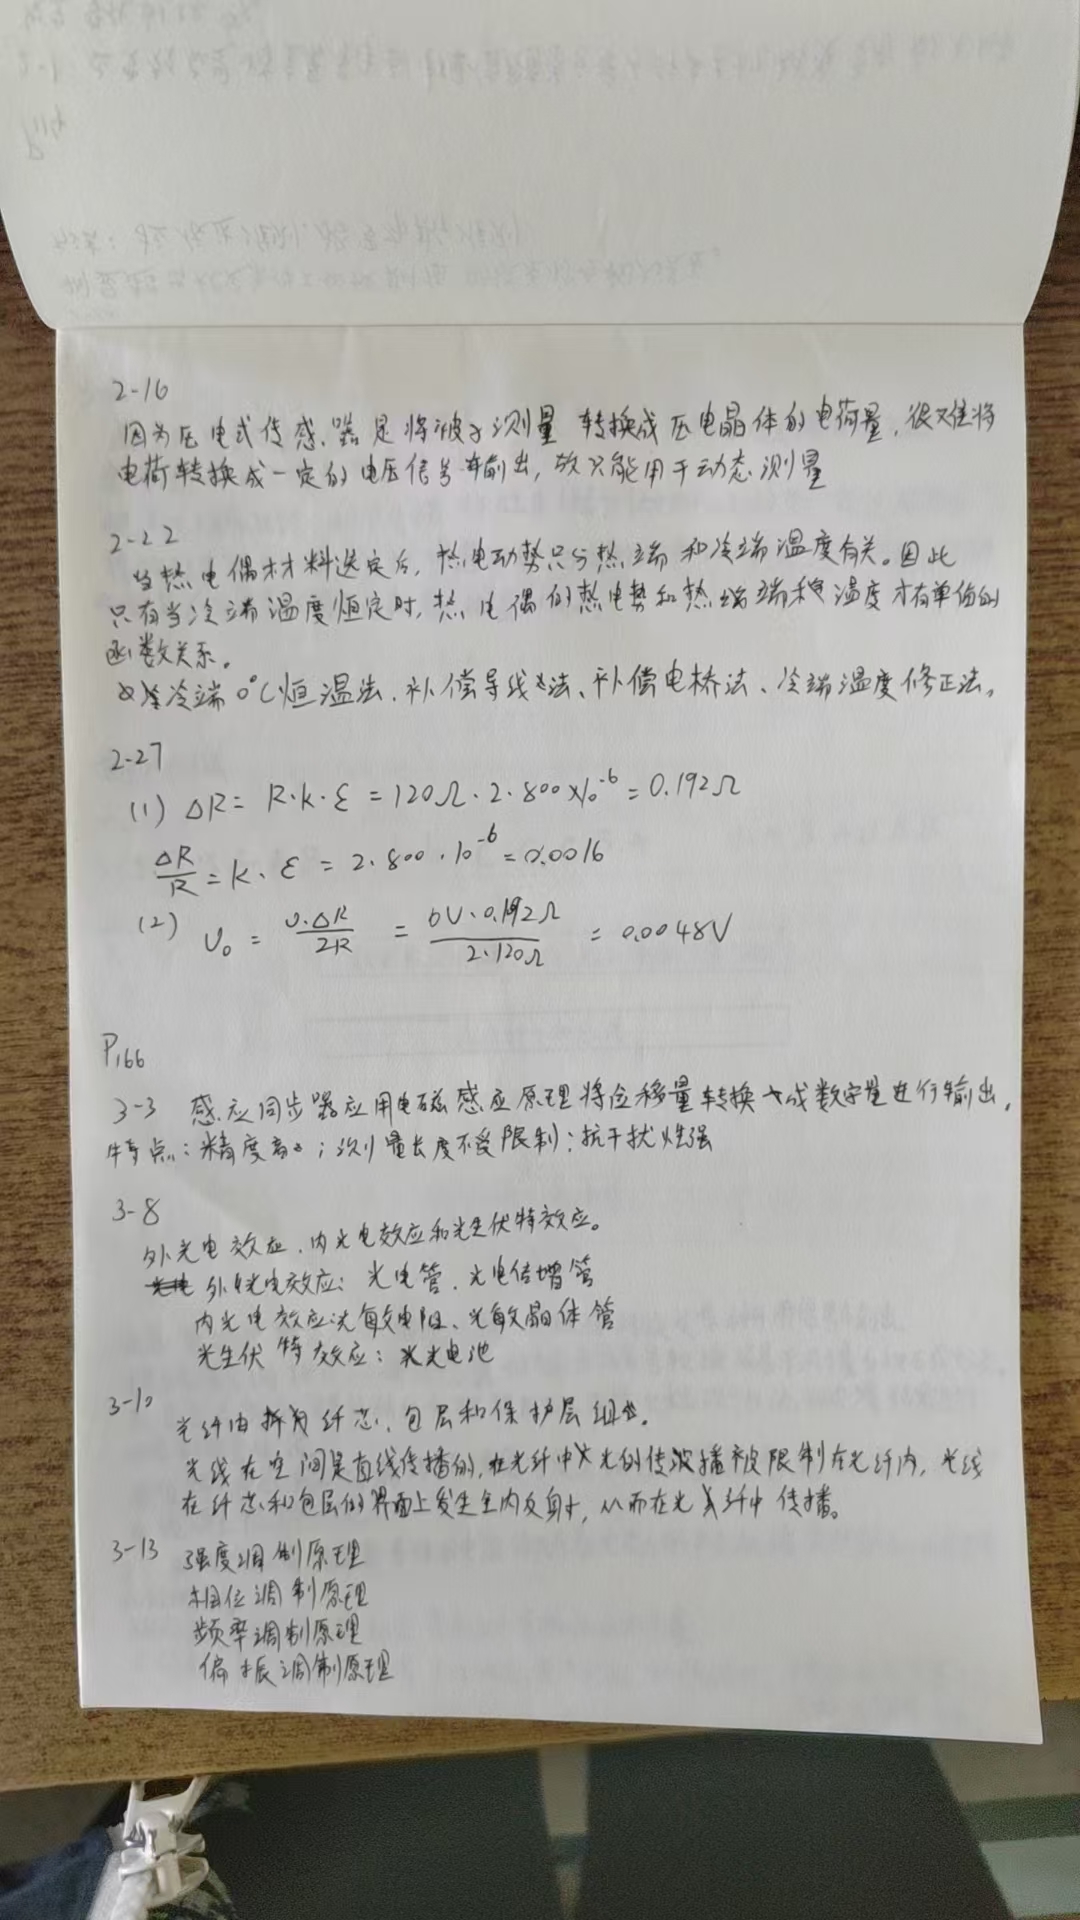 2-16
因为压电式传感器是将被测量转换成压电晶体的电荷量，很难将
电荷转换成一定的电压信号输出，故只能用于动态测量
2-22
当热电偶材料选定后，热电动势只与热端和冷端温度有关。因此
只有当冷端温度恒定时，热电偶的热电势和热端温度才有单值的
函数关系。
冷端0℃恒温法、补偿导线法、补偿电桥法、冷端温度修正法。
2-27
(1) ΔR = R·K·ε = 120Ω·2·800×10⁻⁶ = 0.192Ω
ΔR/R = K·ε = 2·800·10⁻⁶ = 0.0016
(2) U₀ = U·ΔR/2R = 6V·0.192Ω/2·120Ω = 0.0048V
P166
3-3 感应同步器应用电磁感应原理将位移量转换成数字量进行输出。
特点：精度高；测量长度不受限制；抗干扰性强
3-8
外光电效应、内光电效应和光生伏特效应。
外光电效应：光电管、光电倍增管
内光电效应：光敏电阻、光敏晶体管
光生伏特效应：光电池
3-10
光纤由纤芯、包层和保护层组成。
光线在空间是直线传播的，在光纤中光的传播被限制在光纤内，光线
在纤芯和包层的界面上发生全内反射，从而在光纤中传播。
3-13 强度调制原理
相位调制原理
频率调制原理
偏振调制原理